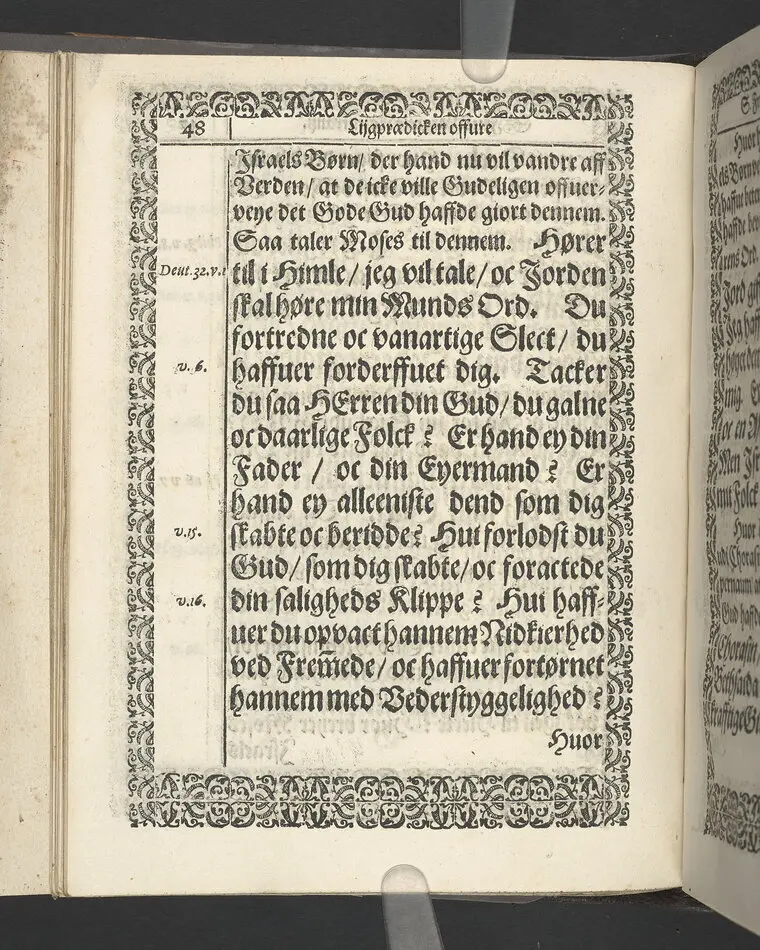 48
Lijgprædicken offure
Israels Børn/ der hand nu vil vandre aff
Verden/ at de icke ville Gudeligen offuer-
veye det Gode Gud haffde giort dennem.
Saa taler Moses til dennem. Hører
Deut. 32. v. 1
til i Himle/ jeg vil tale/ oc Jorden
skal høre min Munds Ord. Du
fortredne oc vanartige Slect/ du
v. 6.
haffuer forderffuet dig. Tacker
du saa HErren din Gud/ du galne
oc daarlige Folck? Er hand ey din
Fader / oc din Eyermand? Er
hand ey alleeniste dend som dig
v. 15.
skabte oc beridde? Hui forlodst du
Gud/ som dig skabte/ oc foractede
v. 16.
din saligheds Klippe? Hui haff-
uer du opvact hannem Nidkierhed
ved Frem̅ede/ oc haffuer fortørnet
hannem med Vederstyggelighed?
Huor